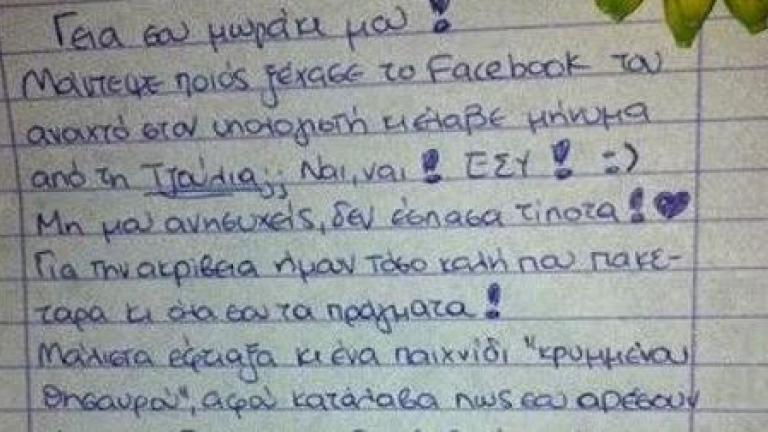 Γεια σου μωράκι μου!
Μάντεψε ποιός ξέχασε το Facebook του
ανοιχτό στον υπολογιστή κι έλαβε μήνυμα
από τη Τζούλια;; Ναι, ναι! ΕΣΥ! :)
Μη μου ανησυχείς, δεν έσπασα τίποτα! ♥
Για την ακρίβεια ήμουν τόσο καλή που πακε-
ταρα κι όλα σου τα πράγματα!
Μάλιστα έφτιαξα κι ένα παιχνίδι "κρυμμένου
θησαυρού", αφού κατάλαβα πως σου αρέσουν